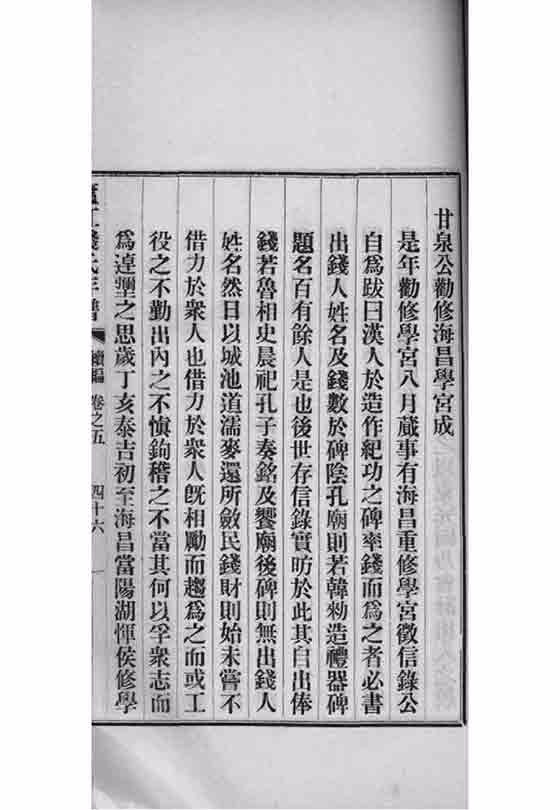 甘泉公勸修海昌學宮成
是年勸修學宮八月蕆事有海昌重修學宮徵信錄公
自爲跋曰漢人於造作紀功之碑率錢而爲之者必書
出錢人姓名及錢數於碑陰孔廟則若韓勑造禮器碑
題名百有餘人是也後世存信錄實昉於此其自出俸
錢若魯相史晨祀孔子奏銘及饗廟後碑則無出錢人
姓名然日以城池道濡麥還所斂民錢財則始未嘗不
借力於衆人也借力於衆人既相勵而趨爲之而或工
役之不勤出內之不愼鉤稽之不當其何以孚衆志而
爲逴壐之思歲丁亥泰吉初至海昌當陽湖惲侯修學
錢氏年譜 續編 卷之五 四十六